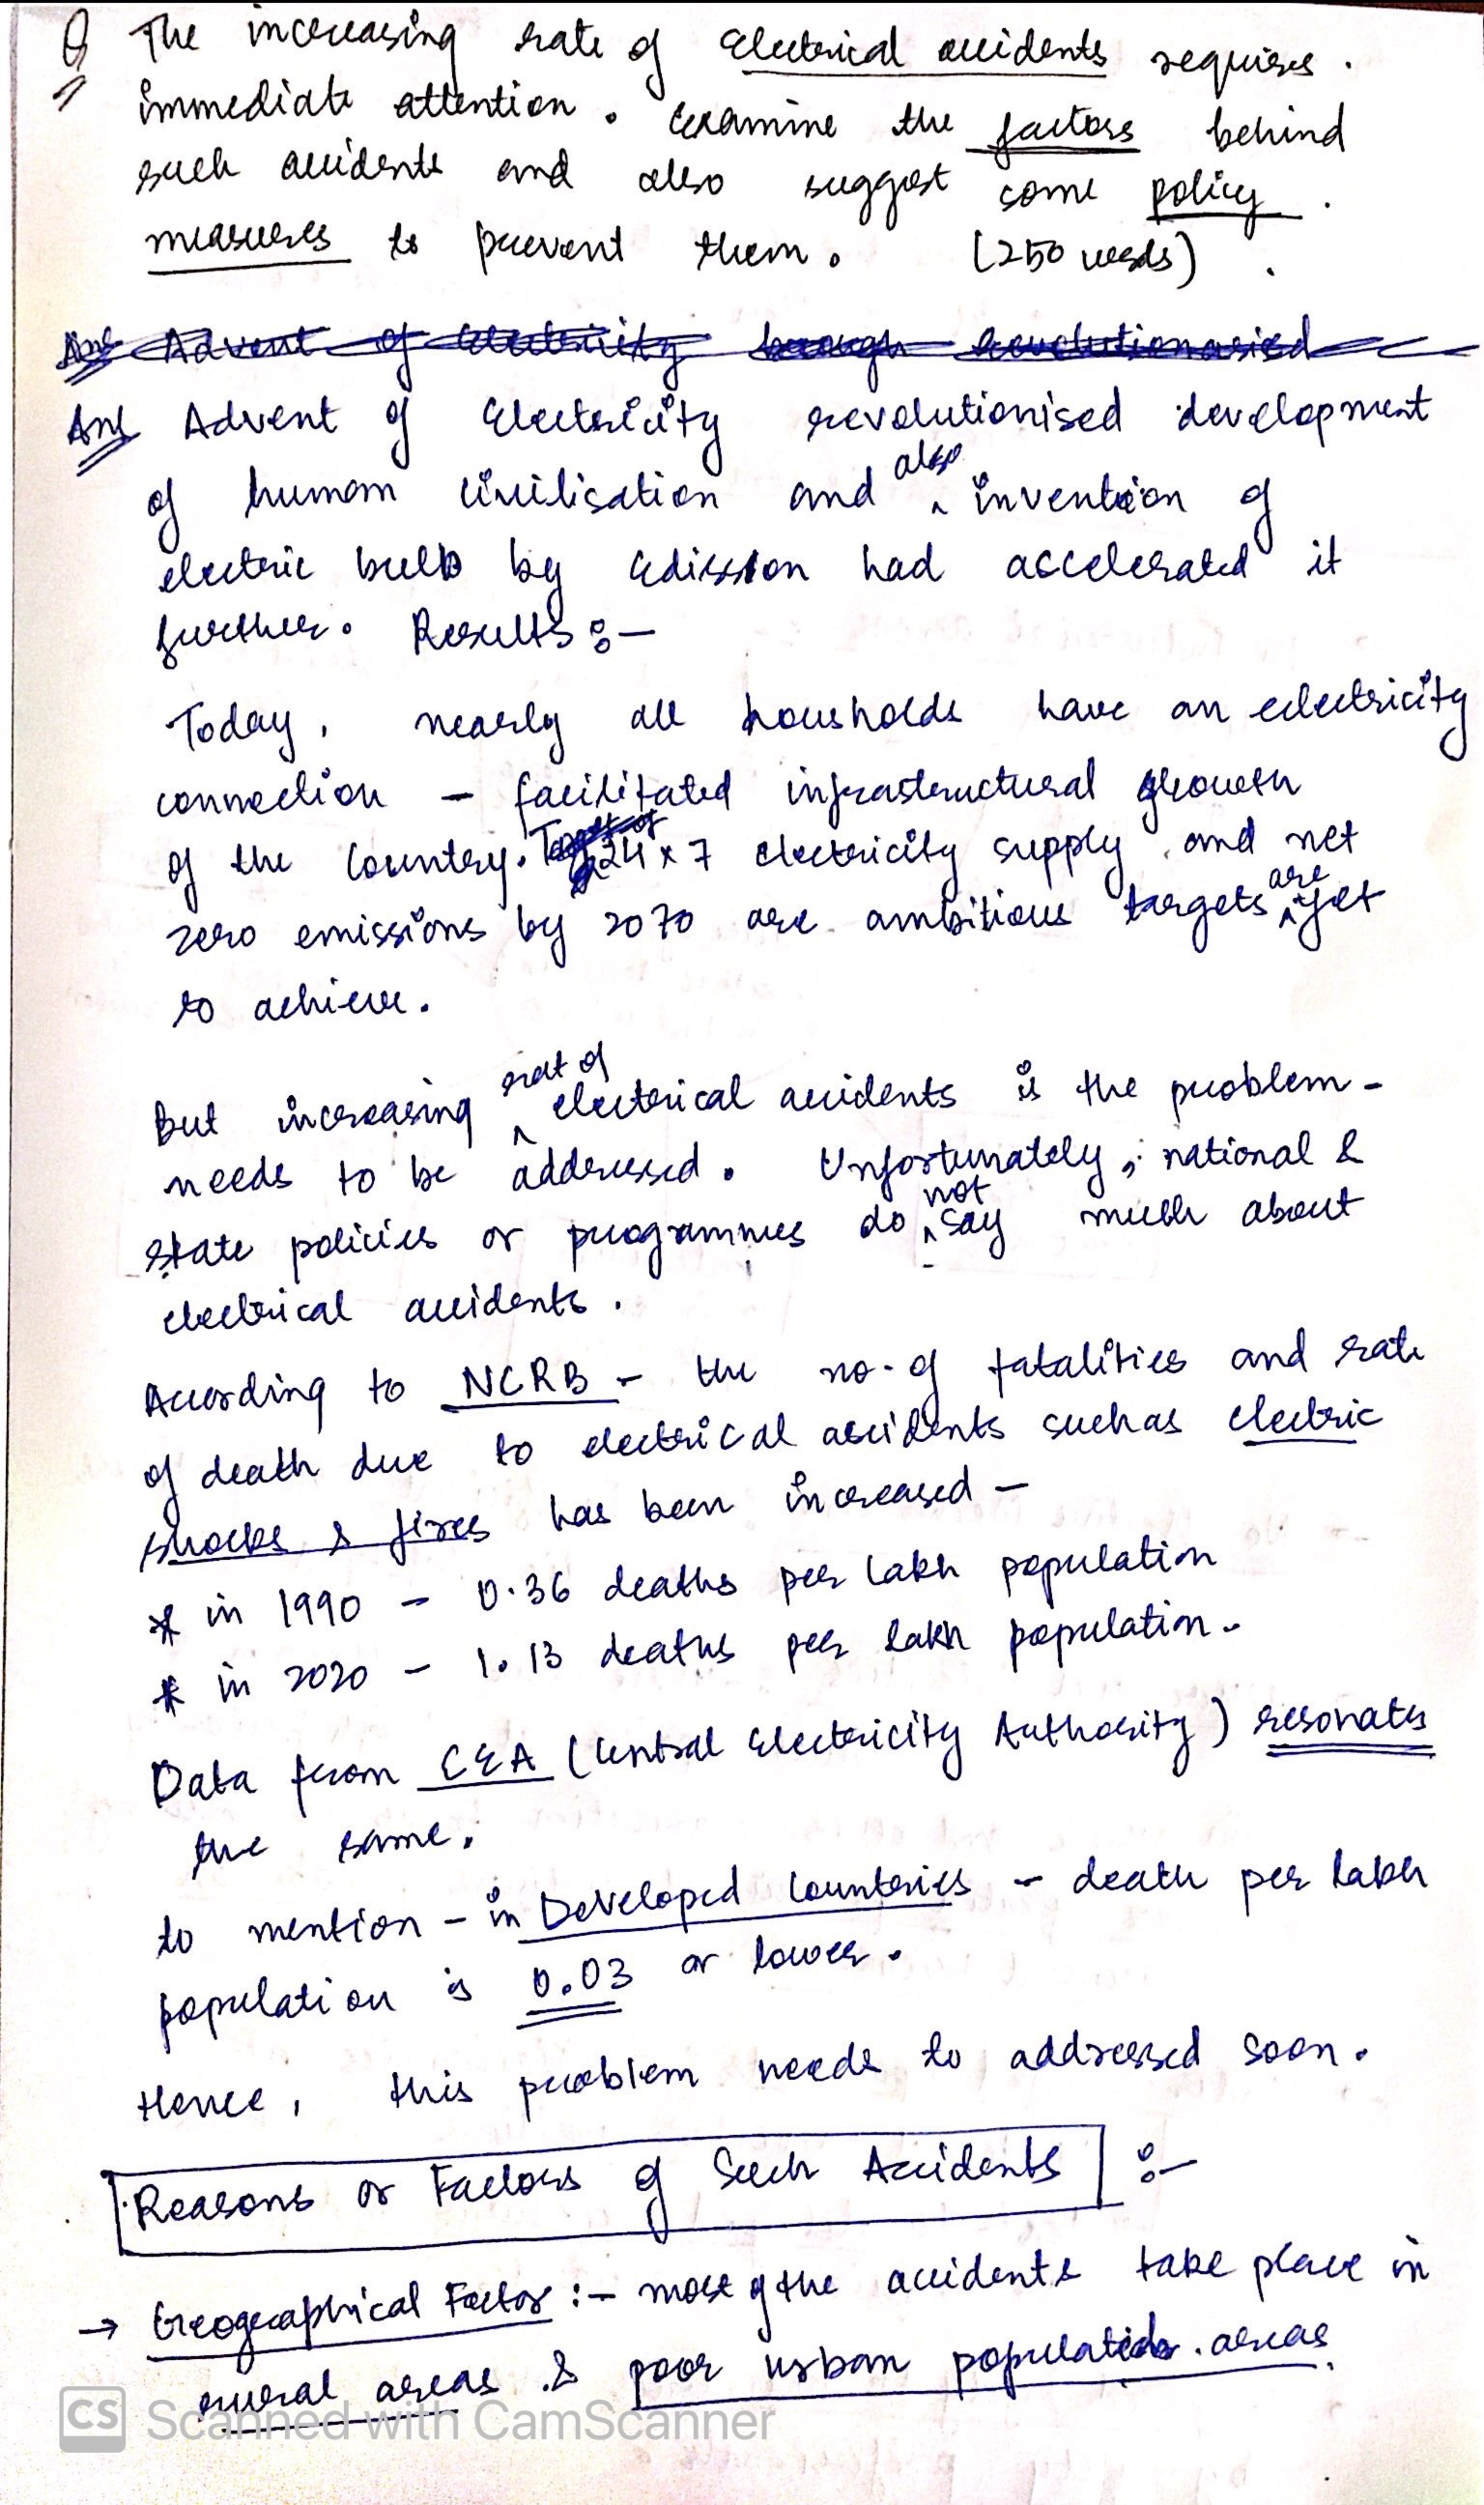 Q The increasing rate of Electrical accidents requires.
immediate attention. Examine the factors behind
such accidents and also suggest some policy.
measures to prevent them. (250 words).
Ans Advent of Electricity brough revolutionarised
Ans Advent of Electricity revolutionised development
of human civilisation and also invention of
electric bulb by Edission had accelerated it
further. Results :-
Today, nearly all housholds have an eclectricity
connection - facilitated infrastructural growth
of the country. Target of 24x7 electricity supply and net
zero emissions by 2070 are ambitious targets are yet
to achieve.
But increasing rate of electrical accidents is the problem -
needs to be addressed. Unfortunately, national &
state policies or programmes do not say much about
electrical accidents.
According to NCRB - the no. of fatalities and rate
of death due to electrical accidents such as electric
shocks & fires has been increased -
* in 1990 - 0.36 deaths per lakh population
* in 2020 - 1.13 deaths per lakh population.
Data from CEA (Central Electricity Authority) resonates
the same.
to mention - in Developed Countries - death per lakh
population is 0.03 or lower.
Hence, this problem needs to addressed soon.
Reasons or Factors of Such Accidents :-
→ Geographical Factor :- most of the accidents take place in
rural areas & poor urban population areas.
CS Scanned with CamScanner